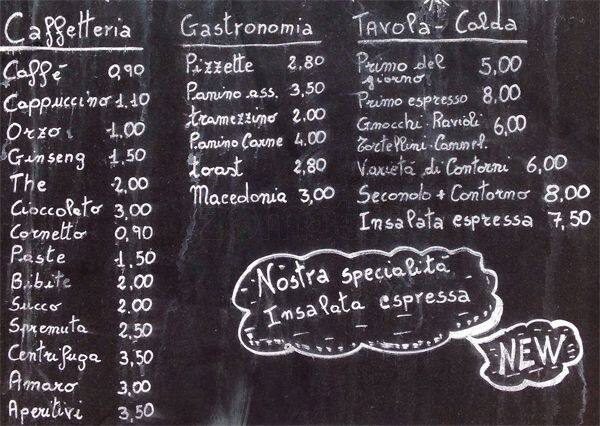 Caffetteria
Caffé 0,90
Cappuccino 1,10
Orzo 1,00
Ginseng 1,50
The 2,00
Cioccolato 3,00
Cornetto 0,90
Paste 1,50
Bibite 2,00
Succo 2,00
Spremuta 2,50
Centrifuga 3,50
Amaro 3,00
Aperitivi 3,50
Gastronomia
Pizzette 2,80
Panino ass. 3,50
tramezzino 2,00
Panino Carne 4,00
toast 2,80
Macedonia 3,00
TAVOLA - Calda
Primo del 5,00
giorno
Primo espresso 8,00
Gnocchi-Ravioli 6,00
Tortellini-Cannel.
Varietá di Contorni 6,00
Secondo + Contorno 8,00
Insalata espressa 7,50
Nostra specialitá
Insalata espressa
NEW